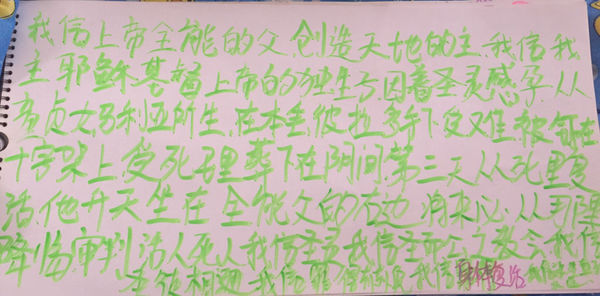 我信上帝全能的父,创造天地的主,我信我
主耶稣基督上帝的独生子因着圣灵感孕,从
童贞女马利亚所生,在本丢彼拉多手下受难,被钉在
十字架上,受死埋葬下在阴间,第三天从死里复
活,他升天坐在全能父的右边,将来必从那里
降临,审判活人死人我信圣灵我信圣而公之教会我信
圣徒相通,我信罪得赦免,我信身体复活